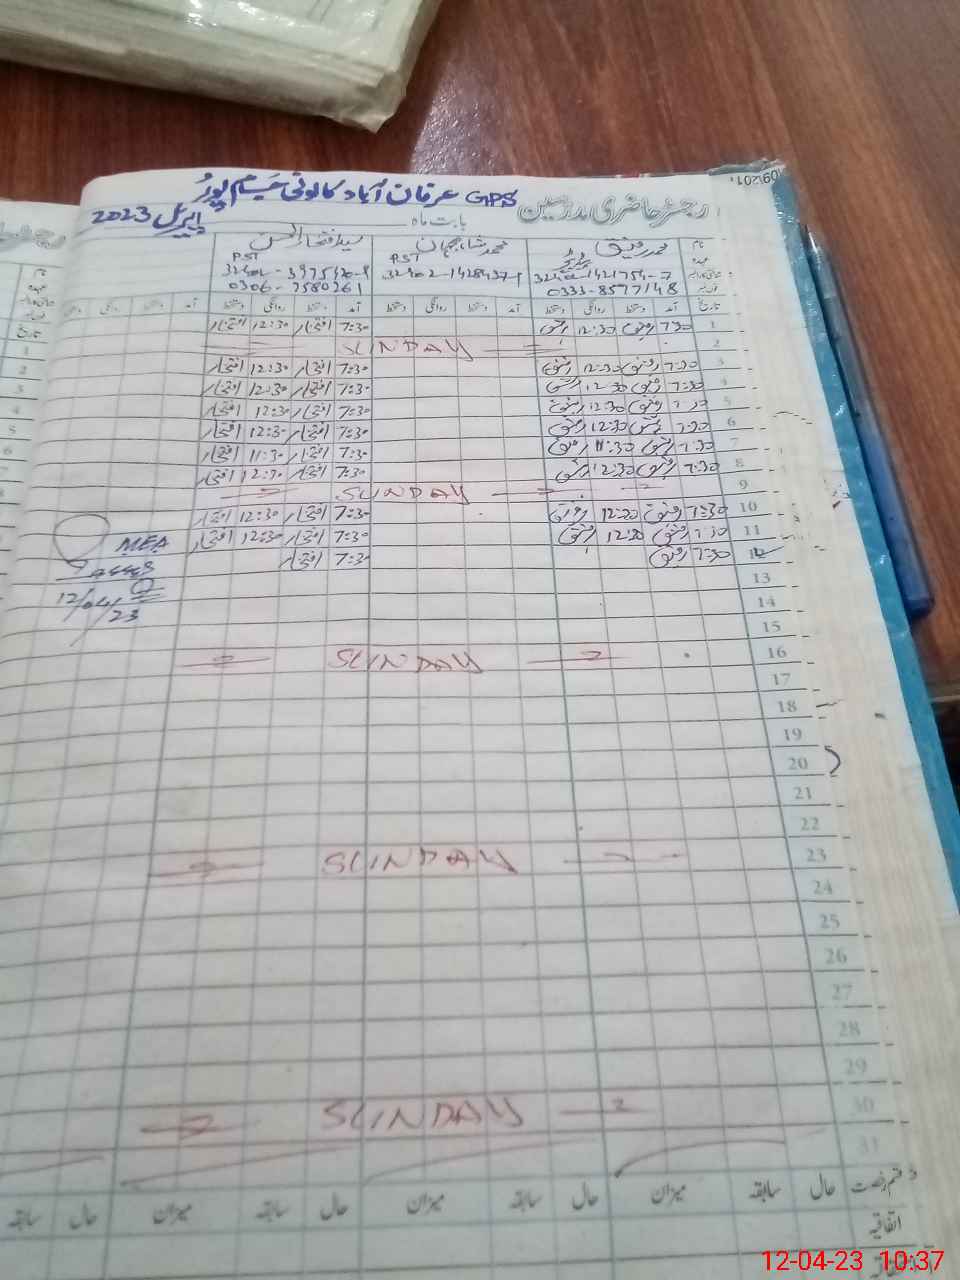 رجسٹر حاضری مدرسین
GPS عرفان آباد کالونی
بابت ماہ
اپریل 2023
نام
محمد رفیق
محمد شاہ جہان
PST
PST
32402-1428437-1
0333-8577148
0306-7580261
تاریخ آمد دستخط روانگی دستخط آمد دستخط روانگی دستخط آمد دستخط روانگی دستخط
1 7:30 رفیق 12:30 رفیق 7:30 افتخار 12:30 افتخار
2 SUNDAY
3 7:30 رفیق 12:30 رفیق 7:30 افتخار 12:30 افتخار
4 7:30 رفیق 12:30 رفیق 7:30 افتخار 12:30 افتخار
5 7:30 رفیق 12:30 رفیق 7:30 افتخار 12:30 افتخار
6 7:30 رفیق 12:30 رفیق 7:30 افتخار 12:30 افتخار
7 7:30 رفیق 11:30 رفیق 7:30 افتخار 11:30 افتخار
8 7:30 رفیق 12:30 رفیق 7:30 افتخار 12:30 افتخار
9 SUNDAY
10 7:30 رفیق 12:30 رفیق 7:30 افتخار 12:30 افتخار
11 7:30 رفیق 12:30 رفیق 7:30 افتخار 12:30 افتخار
12 7:30 رفیق 7:30 افتخار
MEA
12/04/23
13
14
15
16 SUNDAY
17
18
19
20
21
22
23 SUNDAY
24
25
26
27
28
29
30 SUNDAY
31
قسم رخصت حال سابقہ میزان حال سابقہ میزان حال سابقہ میزان حال سابقہ
اتفاقیہ
12-04-23 10:37